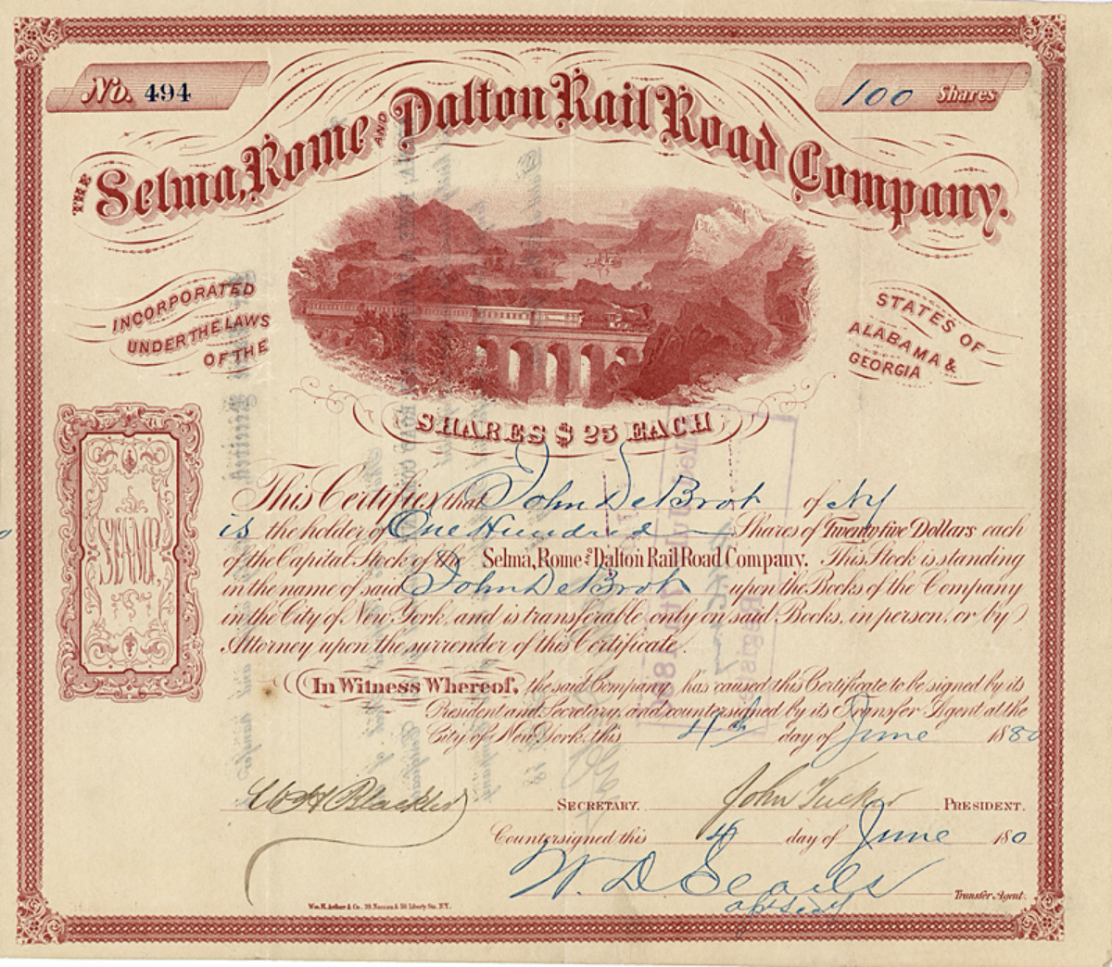 No. 494
100 Shares
THE Selma, Rome AND Dalton Rail Road Company.
INCORPORATED
UNDER THE LAWS
OF THE
STATES OF
ALABAMA &
GEORGIA
SHARES $25 EACH
This Certifies that John DeBrot of NY
is the holder of One Hundred Shares of Twenty five Dollars each
of the Capital Stock of the Selma, Rome and Dalton Rail Road Company. This Stock is standing
in the name of said John DeBrot upon the Books of the Company
in the City of New York, and is transferable only on said Books, in person, or by
Attorney upon the surrender of this Certificate.
STAMP
In Witness Whereof, the said Company has caused this Certificate to be signed by its
President and Secretary, and countersigned by its Transfer Agent at the
City of New York this 4th day of June 1880
SECRETARY. John Tucker PRESIDENT.
Countersigned this 4 day of June 180
W. D. Transfer Agent.
Wm. H. Arthur & Co., 39 Nassau & 56 Liberty Sts. N.Y.